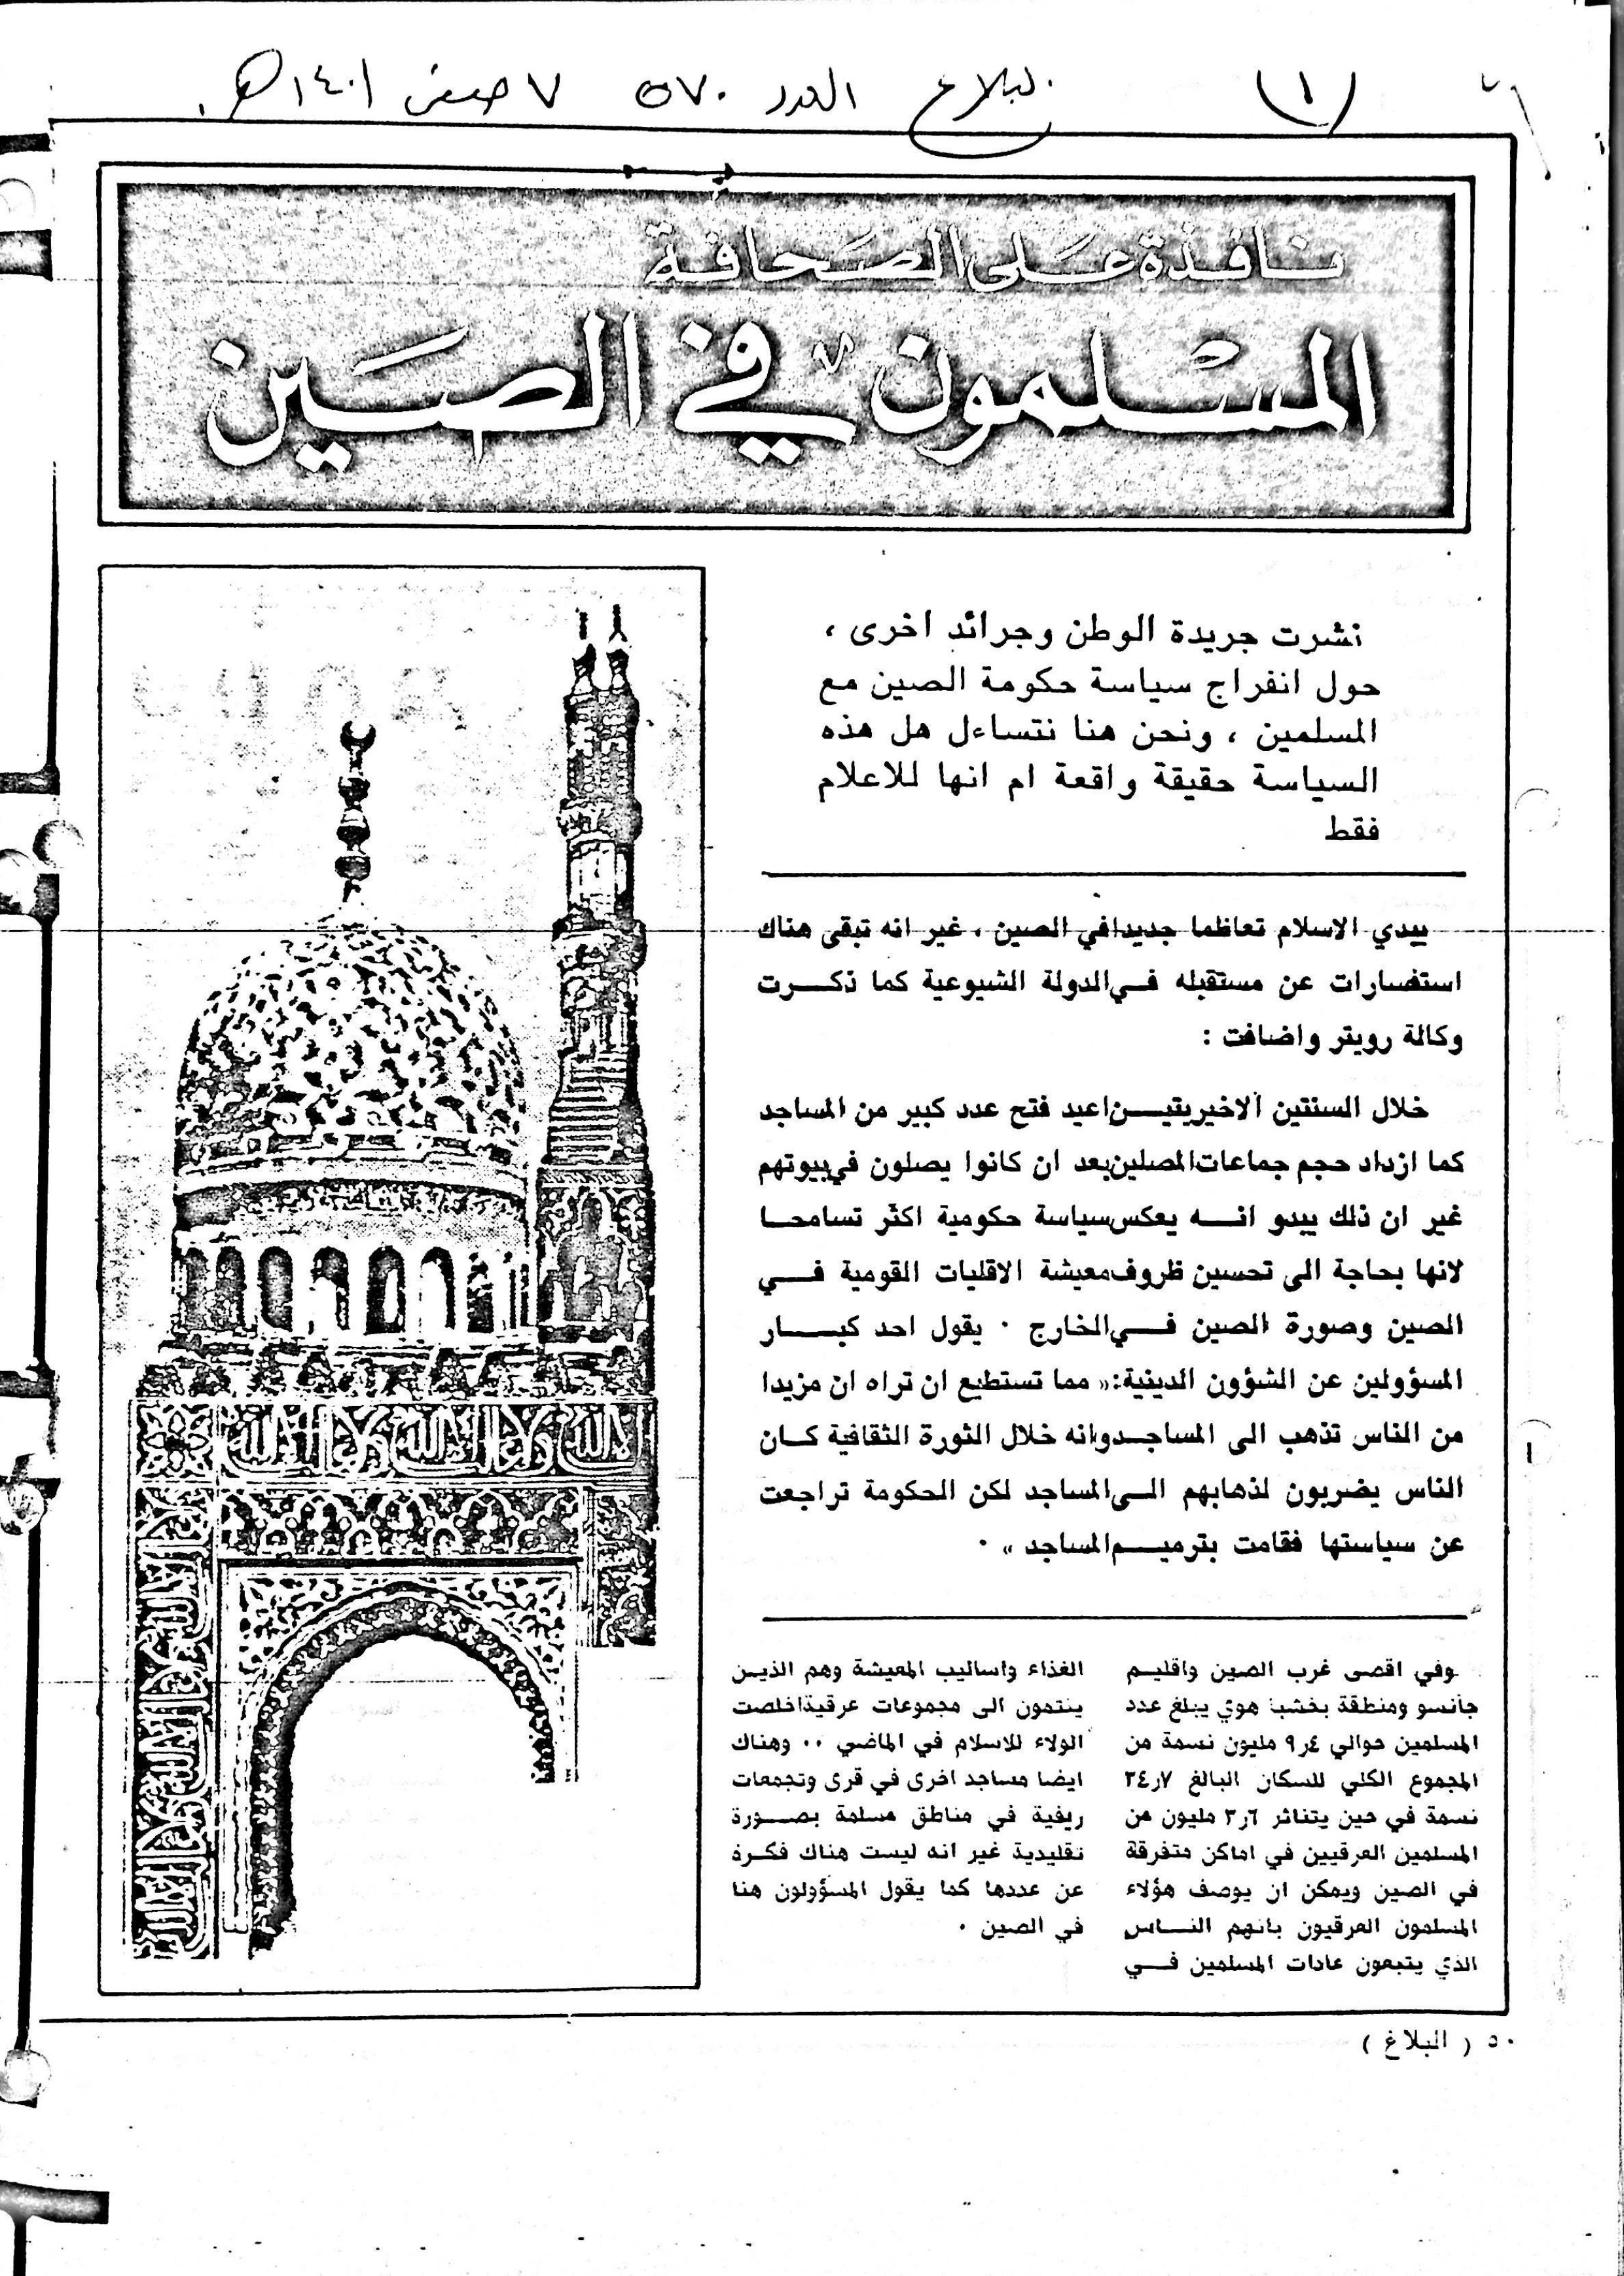 (١) البلاغ العدد ٥٧٠ ٧ صفر ١٤٠١هـ
نافذة على الصحافة
المسلمون في الصين
نشرت جريدة الوطن وجرائد اخرى ،
حول انفراج سياسة حكومة الصين مع
المسلمين ، ونحن هنا نتساءل هل هذه
السياسة حقيقة واقعة ام انها للاعلام
فقط
يبدي الاسلام تعاظما جديدا في الصين ، غير انه تبقى هناك
استفسارات عن مستقبله في الدولة الشيوعية كما ذكرت
وكالة رويتر واضافت :
خلال السنتين الاخيريتين اعيد فتح عدد كبير من المساجد
كما ازداد حجم جماعات المصلين بعد ان كانوا يصلون في بيوتهم
غير ان ذلك يبدو انه يعكس سياسة حكومية اكثر تسامحا
لانها بحاجة الى تحسين ظروف معيشة الاقليات القومية في
الصين وصورة الصين في الخارج . يقول احد كبار
المسؤولين عن الشؤون الدينية : « مما تستطيع ان تراه ان مزيدا
من الناس تذهب الى المساجد وانه خلال الثورة الثقافية كان
الناس يضربون لذهابهم الى المساجد لكن الحكومة تراجعت
عن سياستها فقامت بترميم المساجد » .
وفي اقصى غرب الصين واقليم
جانسو ومنطقة بخشيا هوي يبلغ عدد
المسلمين حوالي ٩٫٤ مليون نسمة من
المجموع الكلي للسكان البالغ ٣٤٫٧
نسمة في حين يتناثر ٣٫٦ مليون من
المسلمين العرقيين في اماكن متفرقة
في الصين ويمكن ان يوصف هؤلاء
المسلمون العرقيون بانهم الناس
الذي يتبعون عادات المسلمين في
الغذاء واساليب المعيشة وهم الذين
ينتمون الى مجموعات عرقية اخلصت
الولاء للاسلام في الماضي .. وهناك
ايضا مساجد اخرى في قرى وتجمعات
ريفية في مناطق مسلمة بصورة
تقليدية غير انه ليست هناك فكرة
عن عددها كما يقول المسؤولون هنا
في الصين .
٥٠ ( البلاغ )